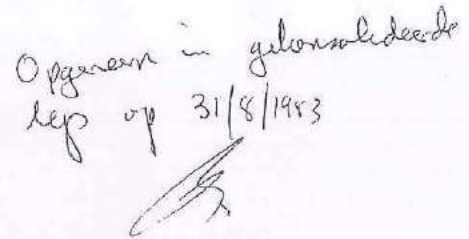 Opgeneem in gekonsolideerde
lys op 31/8/1983